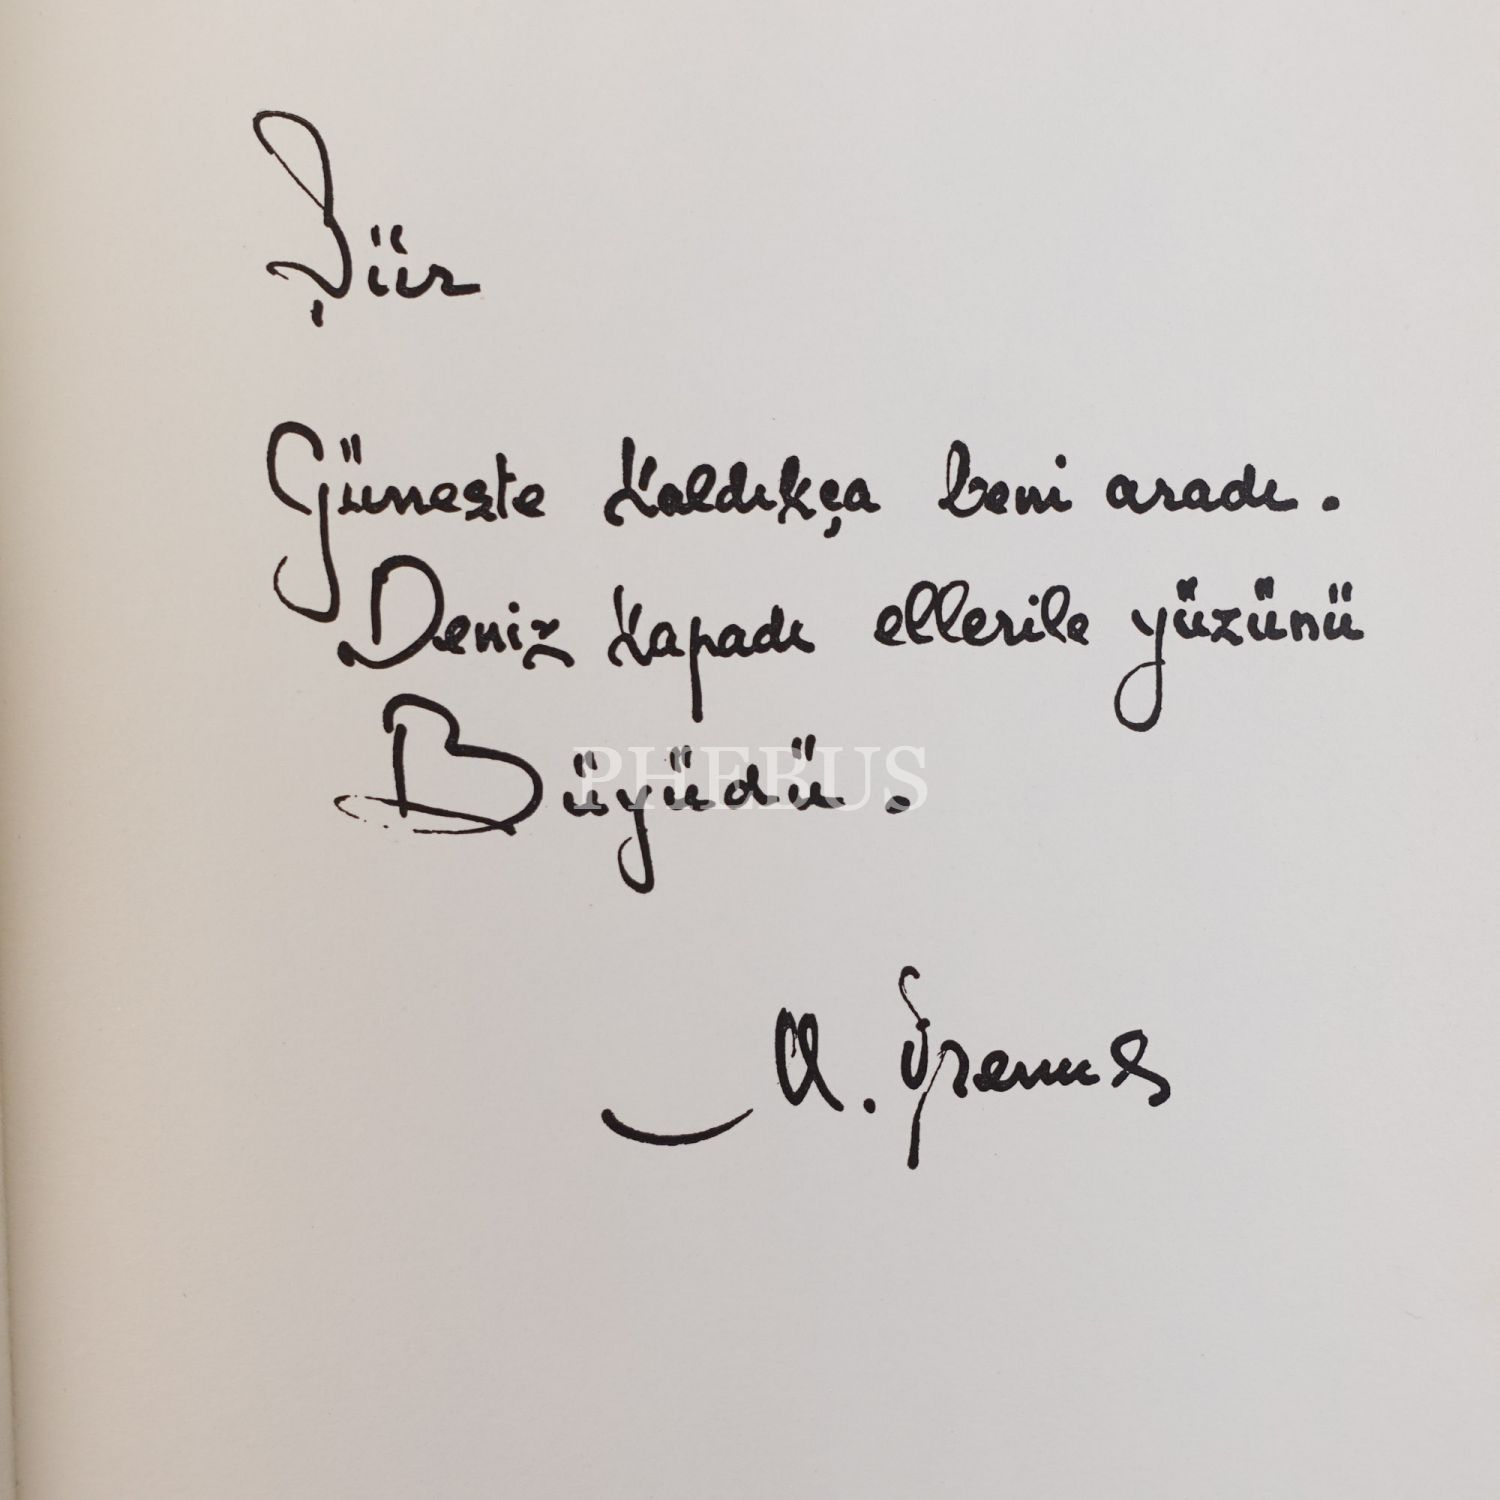 Şiir
Güneşte kaldıkça beni aradı.
Deniz kapadı ellerile yüzünü
Büyüdü.
PHEBUS